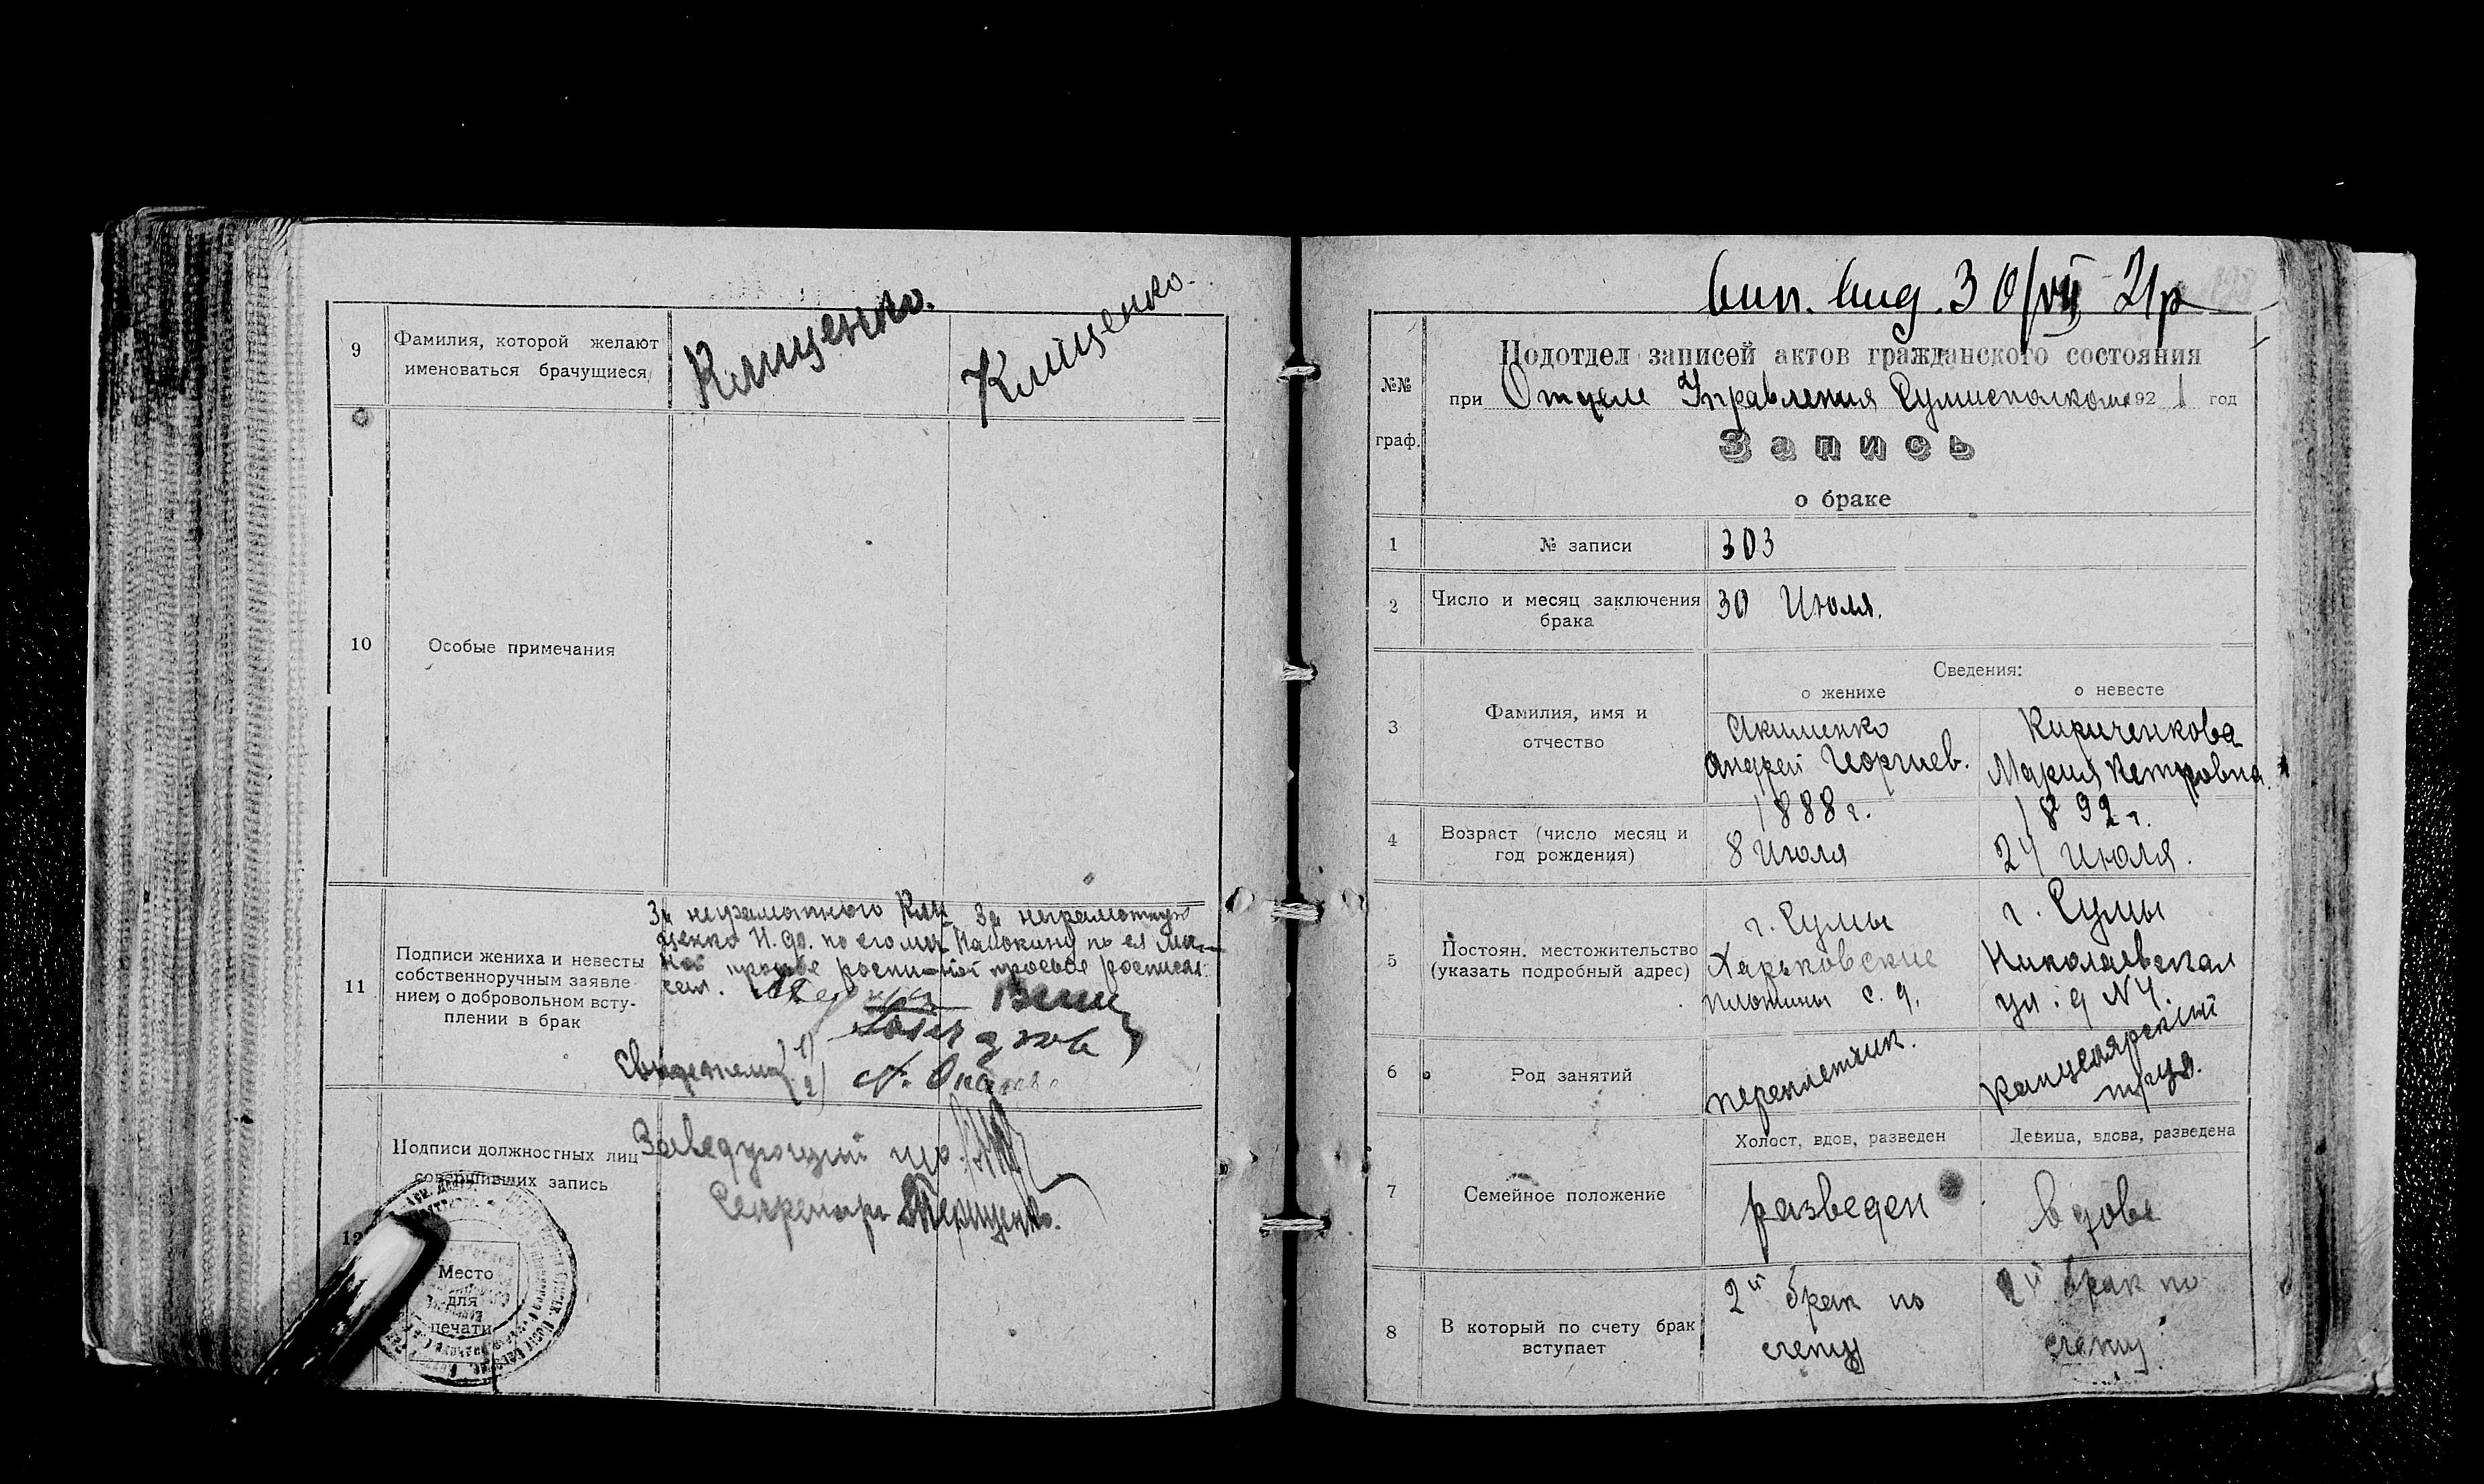 9
Фамилия, которой желают
именоваться брачущиеся
Клищенко.
Клищенко.
10
Особые примечания
11
Подписи жениха и невесты
собственноручным заявле-
нием о добровольном всту-
плении в брак
За неграмотного Кли
щенко И. Ф. по его лич
ной просьбе росписал
За неграмотную
по ея лич
ной просьбе росписал
Свидетели 1)
2)
12
Подписи должностных лиц
совершивших запись
Заведующий п/о
Секретарь Терещенко.
Место
для
печати
вип. вид. 30/VII 21р
№№
граф.
Подотдел записей актов гражданского состояния
при Отделе Управления Сумисполкома 1921 год
Запись
о браке
1
№ записи
303
2
Число и месяц заключения
брака
30 Июля.
Сведения:
о женихе
о невесте
3
Фамилия, имя и
отчество
Акименко
Андрей Георгиев.
Кириченкова
Мария Петровна
4
Возраст (число месяц и
год рождения)
1888 г.
8 Июля
1892 г.
24 Июля.
5
Постоян. местожительство
(указать подробный адрес)
г. Сумы
Харьковские
плотины с. д.
г. Сумы
Николаевская
ул. д № 4.
6
Род занятий
переплетчик.
Канцелярский
труд.
7
Семейное положение
Холост, вдов, разведен
Девица, вдова, разведена
разведен
вдова
8
В который по счету брак
вступает
2й брак по
счету
2й брак по
счету